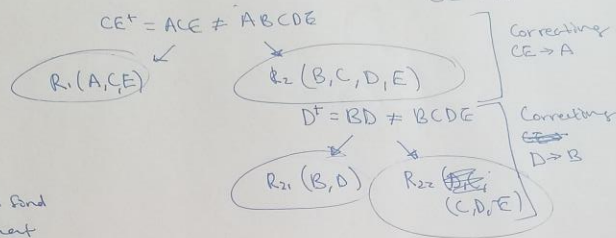 CE⁺ = ACE ≠ ABCDE
R₁(A,C,E)
R₂ (B,C,D,E)
Correcting
CE → A
D⁺ = BD ≠ BCDE
Correcting
D → B
R₂₁ (B,D)
R₂₂
(C,D,E)
find